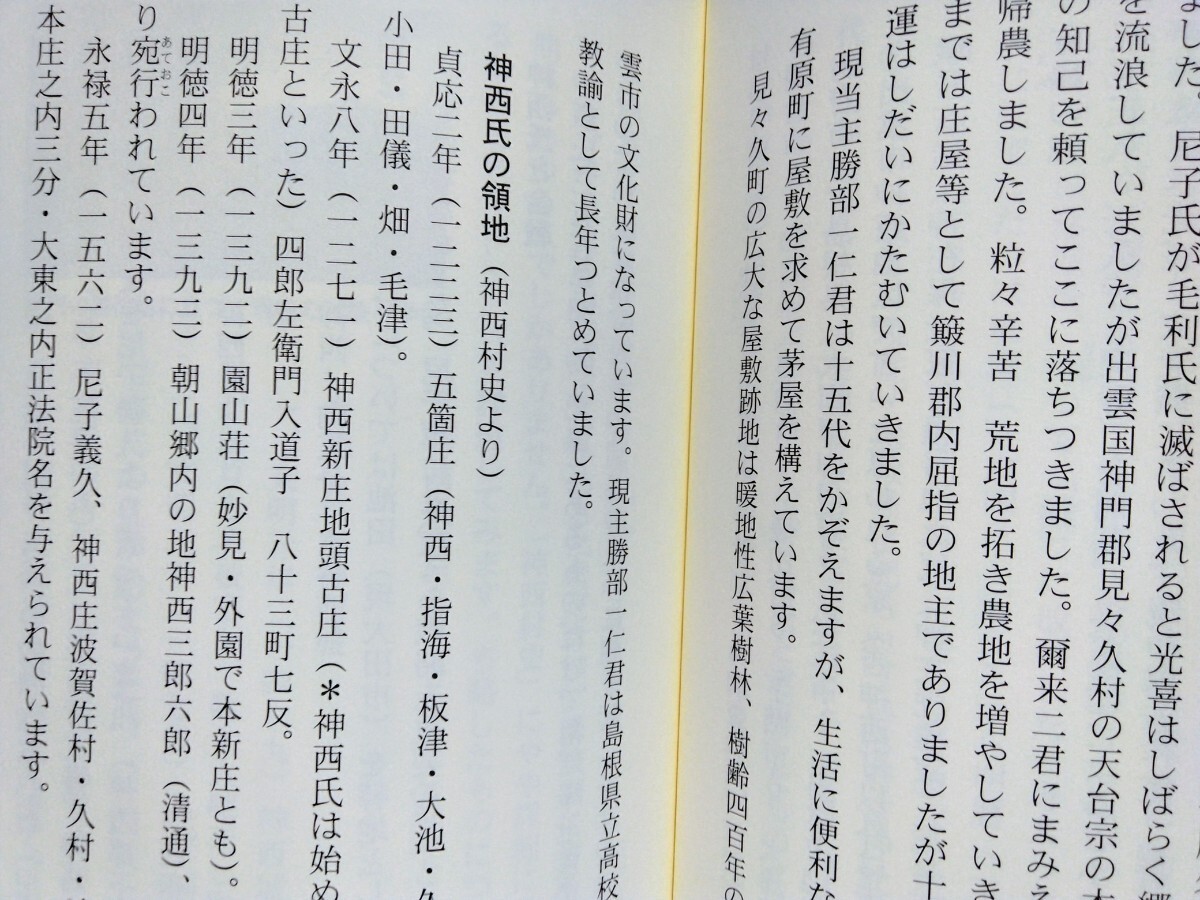 ました。尼子氏が毛利氏に滅ばされると光喜はしばらく
を流浪していましたが出雲国神門郡見々久村の天台宗の
の知己を頼ってここに落ちつきました。爾来二君にまみえ
帰農しました。粒々辛苦 荒地を拓き農地を増やしていき
までは庄屋等として簸川郡内屈指の地主でありましたが十
運はしだいにかたむいていきました。
現当主勝部一仁君は十五代をかぞえますが、生活に便利な
有原町に屋敷を求めて茅屋を構えています。
見々久町の広大な屋敷跡地は暖地性広葉樹林、樹齢四百年の
雲市の文化財になっています。現主勝部一仁君は島根県立高校
教諭として長年つとめていました。
神西氏の領地（神西村史より）
貞応二年（一二二三）五箇庄（神西・指海・板津・大池・久
小田・田儀・畑・毛津）。
文永八年（一二七一）神西新庄地頭古庄（＊神西氏は始め
古庄といった）四郎左衛門入道子 八十三町七反。
明徳三年（一三九二）園山荘（妙見・外園で本新庄とも）。
明徳四年（一三九三）朝山郷内の地神西三郎六郎（清通）、
り宛行われています。
あておこ
永禄五年（一五六二）尼子義久、神西庄波賀佐村・久村・
本庄之内三分・大東之内正法院名を与えられています。